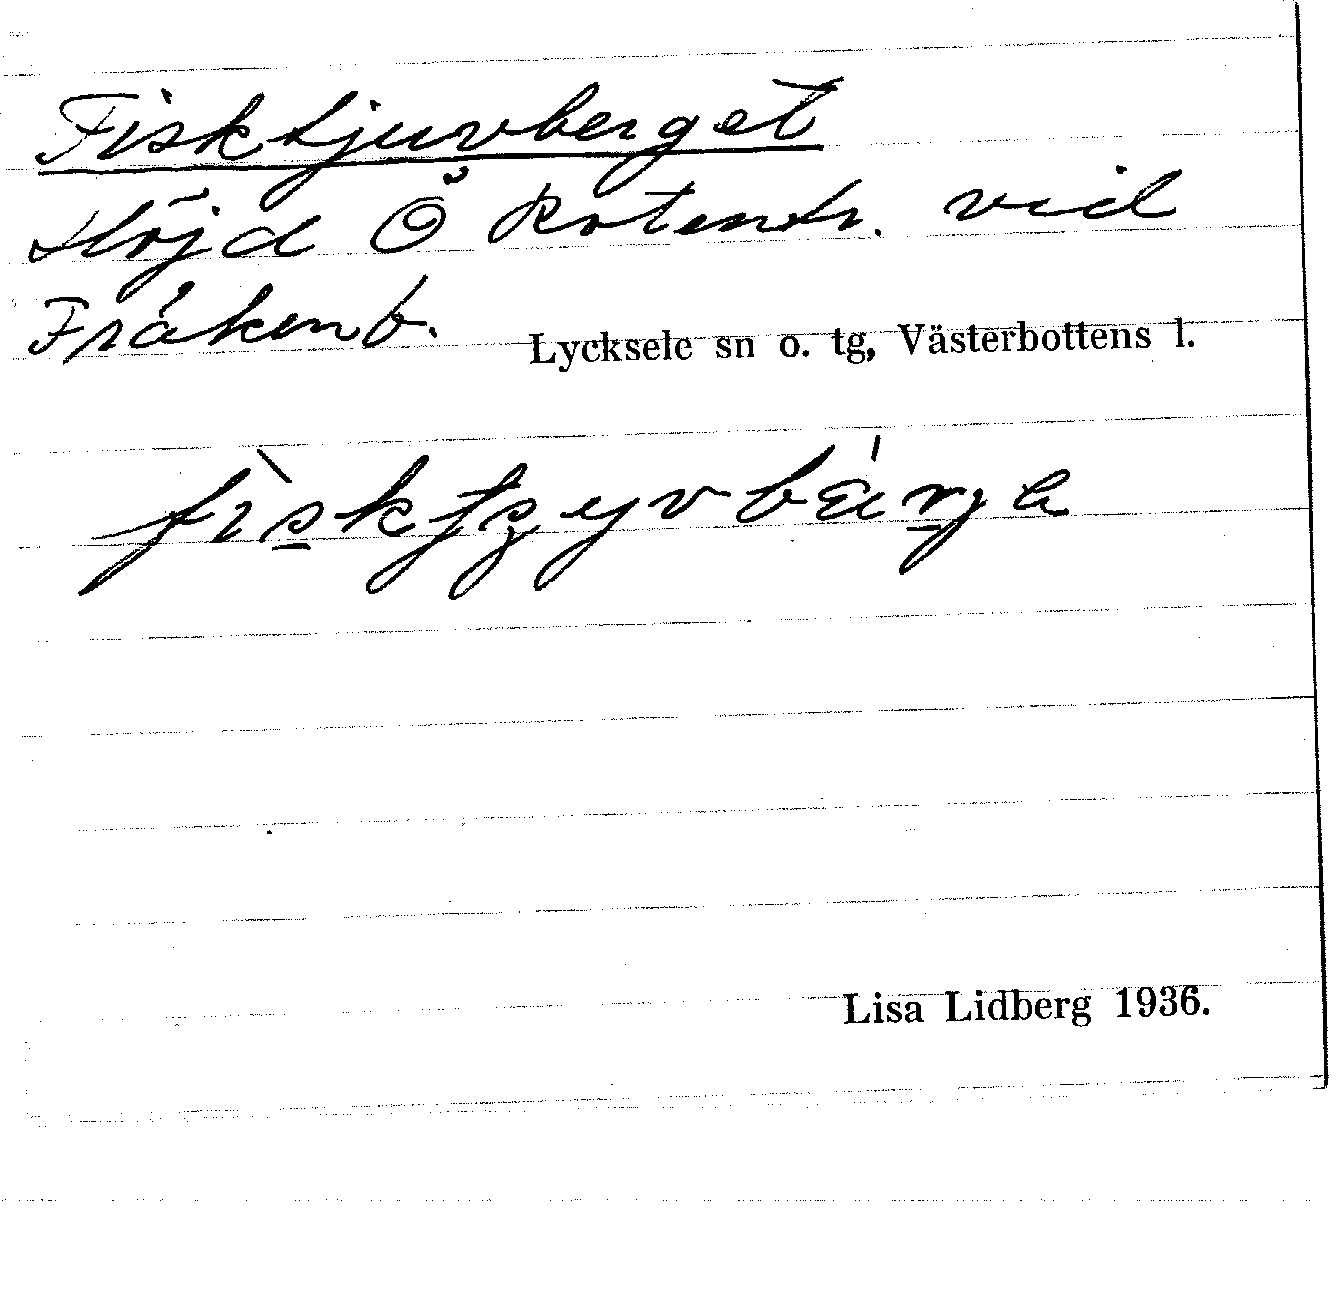 Fisktjuvberget
Höjd Ö Rotentr. vid
Fräkenb.
Lycksele sn o. tg, Västerbottens l.
Lisa Lidberg 1936.